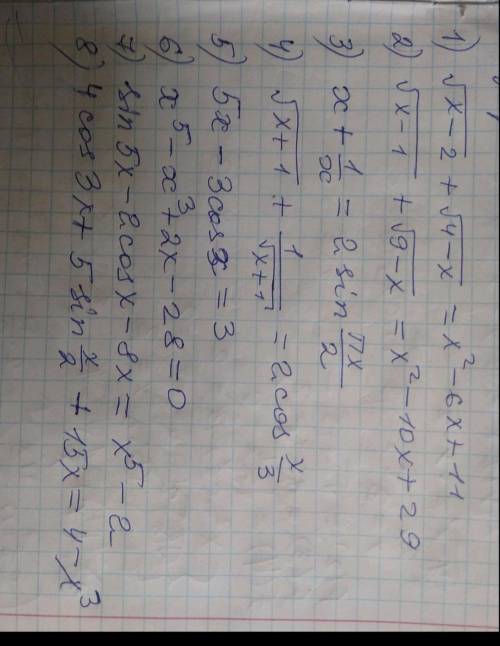 1) √x-2 + √4-x = x² - 6x + 11
2) √x-1 + √9-x = x² - 10x + 29
3) x + 1/x = 2 sin πx/2
4) √x+1 + 1/√x+1 = 2 cos x/3
5) 5x - 3 cos x = 3
6) x⁵ - x³ + 2x - 28 = 0
7) sin 5x - 2cosx - 8x = x⁵ - 2
8) 4 cos 3x + 5 sin x/2 + 15x = 4 - x³